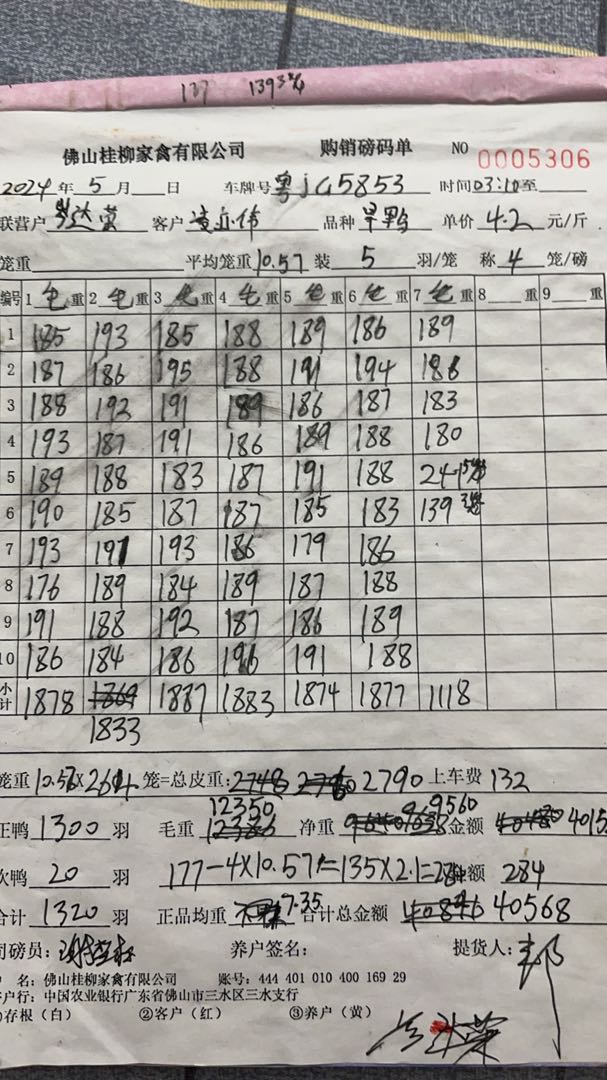 137 139 3
佛山桂柳家禽有限公司 购销磅码单 NO 0005306
2024年5月 日 车牌号粤JG5853 时间03:10至
联营户 罗达荣 客户 凌亦伟 品种 旱鸭 单价4.2元/斤
笼重 平均笼重10.57装 5 羽/笼 称4笼/磅
编号 1 毛重 2 毛重 3 毛重 4 毛重 5 毛重 6 毛重 7 毛重 8 重 9 重
1 185 193 185 188 189 186 189
2 187 186 195 188 191 194 186
3 188 192 191 189 186 187 183
4 193 187 191 186 189 188 180
5 189 188 183 187 191 188 241
6 190 185 187 187 185 183 139
7 193 191 193 186 179 186
8 176 189 184 189 187 188
9 191 188 192 187 186 189
10 186 184 186 196 191 188
小计 1878 1869 1887 1883 1874 1877 1118
1833
笼重10.57X264笼=总皮重: 2748 2790 上车费 132
12350 9560
正鸭1300羽 毛重 净重 金额 4015
次鸭 20 羽 177-4X10.57=135X2.1=284 额 284
合计1320羽 正品均重 7.35 合计总金额 40568
司磅员: 养户签名: 提货人:
户 名: 佛山桂柳家禽有限公司 账号: 444 401 010 400 169 29
开户行: 中国农业银行广东省佛山市三水区三水支行
①存根（白） ②客户（红） ③养户（黄）